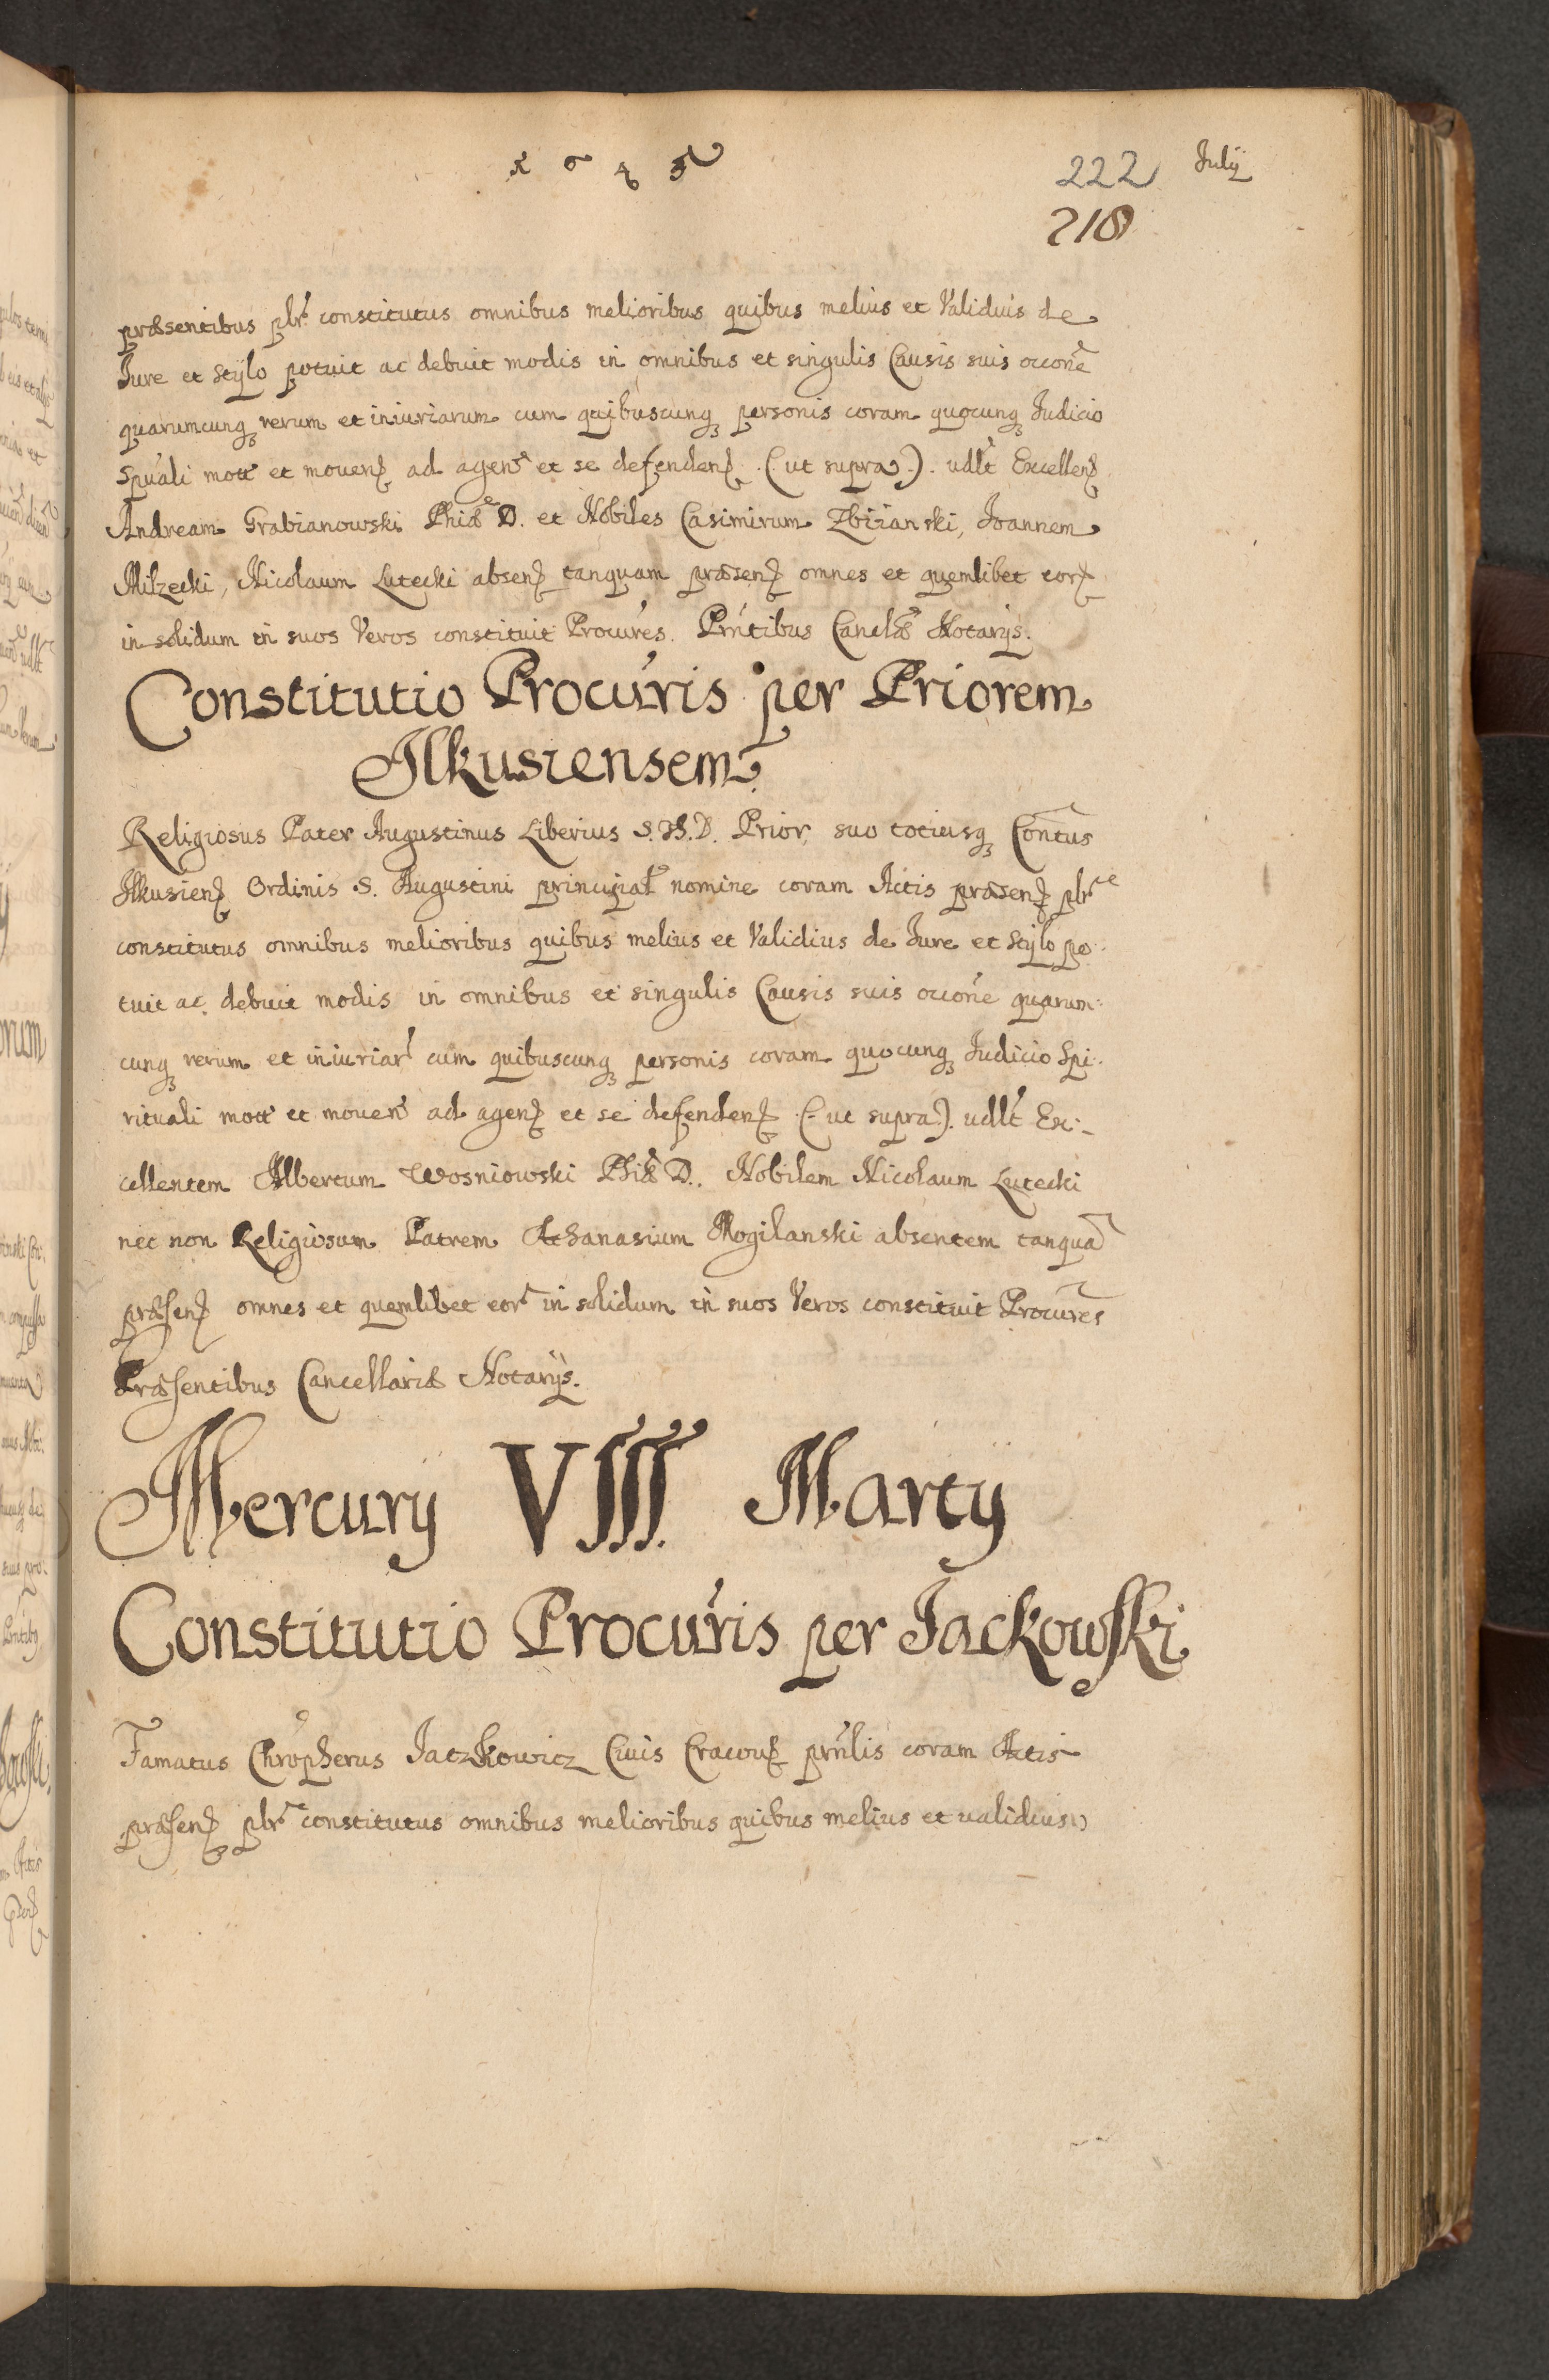 1645
222 July
218
præsentibus pbr̃ constitutus omnibus melioribus quibus melius et Validius de
Jure et Stylo potuit ac debuit modis in omnibus et singulis Causis suis occone
quarumcunq₃ rerum et iniuriarum cum quibuscunq₃ personis coram quocunq₃ Judicio
Spuali mott et mouenꝫ ad agenꝫ et se defendenꝫ (: ut supra :). udlt Excellenꝫ
Andream Grabianowski Phiæ D. et Nobiles Casimirum Zbijanski, Joannem
Milzecki, Nicolaum Lutecki absenꝫ tanquam præsenꝫ omnes et quemlibet eorꝫ
in solidum in suos Veros constituit Procures. Prntibus Canclæ Notarys.
Constitutio Procuris per Priorem
Ilkusiensem
Religiosus Pater Augustinus Liberius S. Th. D. Prior, suo totiusq₃ Contus
Ilkusienꝫ Ordinis S. Augustini principał nomine coram Actis præsenꝫ pbre
constitutus omnibus melioribus quibus melius et Validius de Jure et Stylo po:
tuit ac debuit modis in omnibus et singulis Causis suis occone quarum:
cunq₃ rerum et iniuriar cum quibuscunq₃ personis coram quocunq₃ Judicio Spi:
rituali mott et mouen ad agenꝫ et se defendenꝫ (: ut supra :). udlt Ex:
cellentem Albertum Wosniowski Phiæ D., Nobilem Nicolaum Lutecki
nec non Religiosum Patrem Athanasium Mogilanski absentem tanquã
præsenꝫ omnes et quemlibet eor in solidum in suos Veros constituit Procures
Præsentibus Cancellariæ Notarys.
Mercury VIII Marty
Constitutio Procuris per Jackowski
Famatus Chropherus Jatzkowicz Ciuis Cracouꝫ prnlis coram Actis
præsenꝫ pbre constitutus omnibus melioribus quibus melius et validius